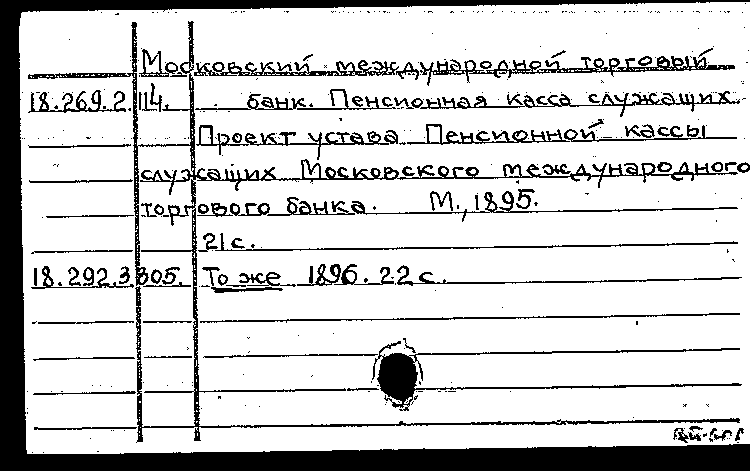 Московский международной торговый
18.269.2.114. банк. Пенсионная касса служащих.
Проект устава Пенсионной кассы
служащих Московского международного
торгового банка. М., 1895.
21 с.
18.292.3.305. То же 1896. 22 с.